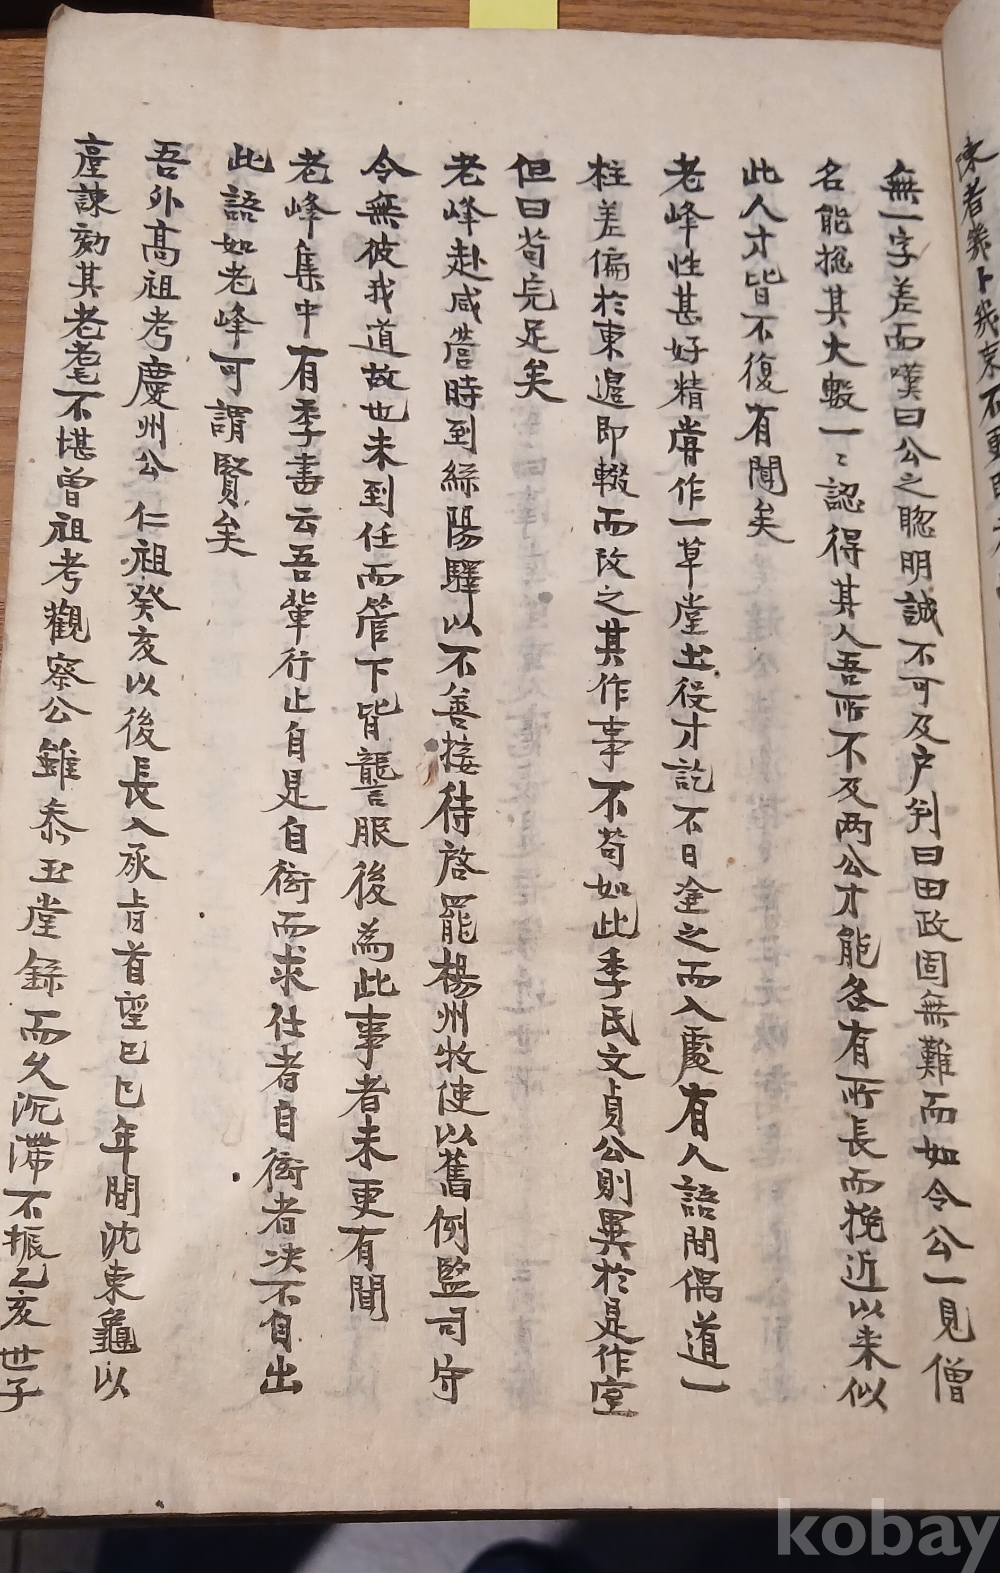 無一字差而嘆曰公之聡明誠不可及户判曰田政固無難而如令公一見僧
名能摠其大數一〻認得其人吾所不及两公才能各有所長而挽近以来似
此人才皆不復有聞矣
老峰性甚好精甞作一草堂出役才訖不日塗之而入處有人語間偶道一
柱差偏於東邉即輟而改之其作事不苟如此季氏文貞公則異於是作室
但曰苟完足矣
老峰赴咸营時到綠陽驛以不善接待啓罷楊州牧使以舊例監司守
令無彼我道故也未到任而管下皆讋服後為此事者未更有聞
老峰集中有季書云吾輩行止自是自衒而求仕者自衒者决不自出
此語如老峰可謂賢矣
吾外高祖考慶州公仁祖癸亥以後長入承㫖首望己巳年間沈東龜以
臺諫劾其老耄不堪曾祖考觀察公雖忝玉堂錄而久沉滯不振乙亥世子